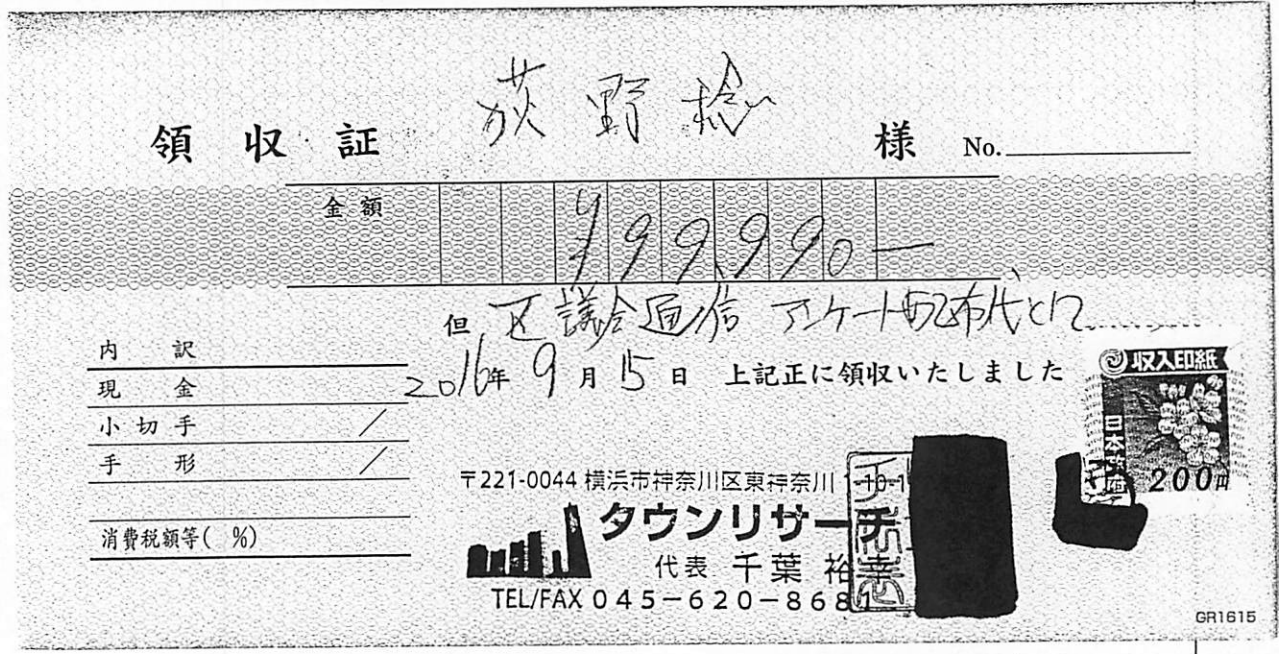 荻野稔
領収証 様 No.
金額 ¥199,990—
但 区議会通信 アンケート配布代として
2016年9月15日 上記正に領収いたしました
内訳
現金
小切手
手形
消費税額等( %)
収入印紙
日本政府
200円
〒221-0044 横浜市神奈川区東神奈川 1-10-1
タウンリサーチ
代表 千葉 裕幸
TEL/FAX 045-620-8681
GR1615